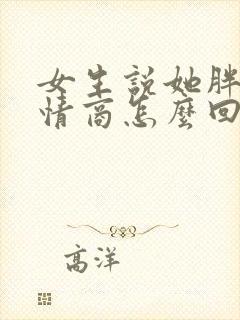 女生説她胖
情商怎麼回
高洋